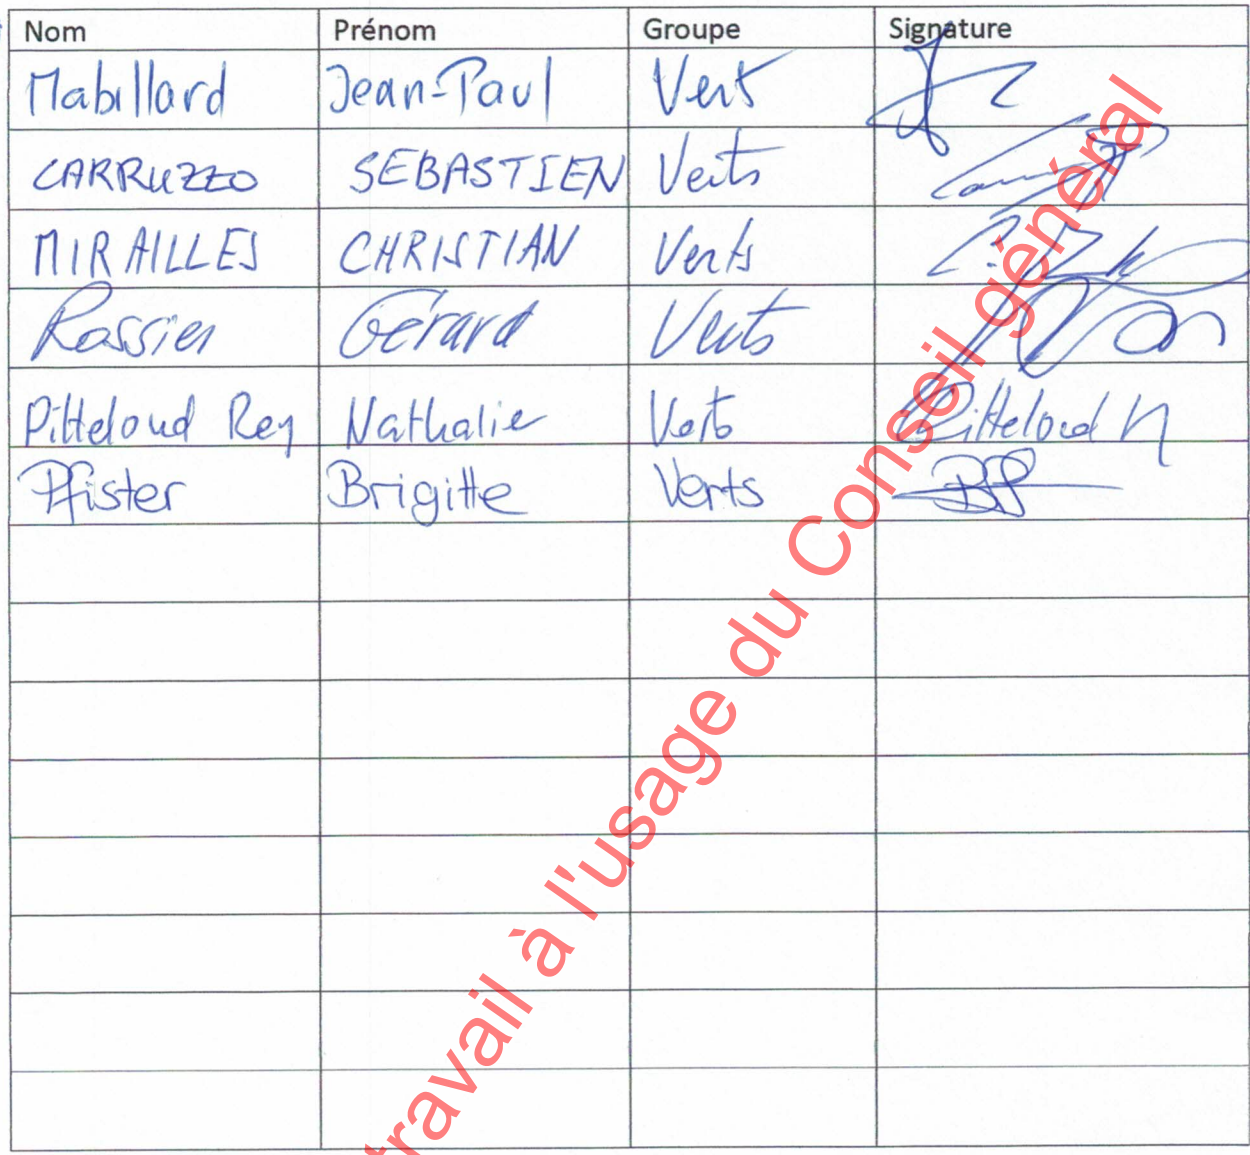 Nom Prénom Groupe Signature
Mabillard Jean-Paul Vert
CARRUZZO SEBASTIEN Verts
MIRAILLES CHRISTIAN Verts
Rossier Gérard Verts
Pitteloud Rey Nathalie Verts Pitteloud N
Pfister Brigitte Verts
travail à l'usage du Conseil général